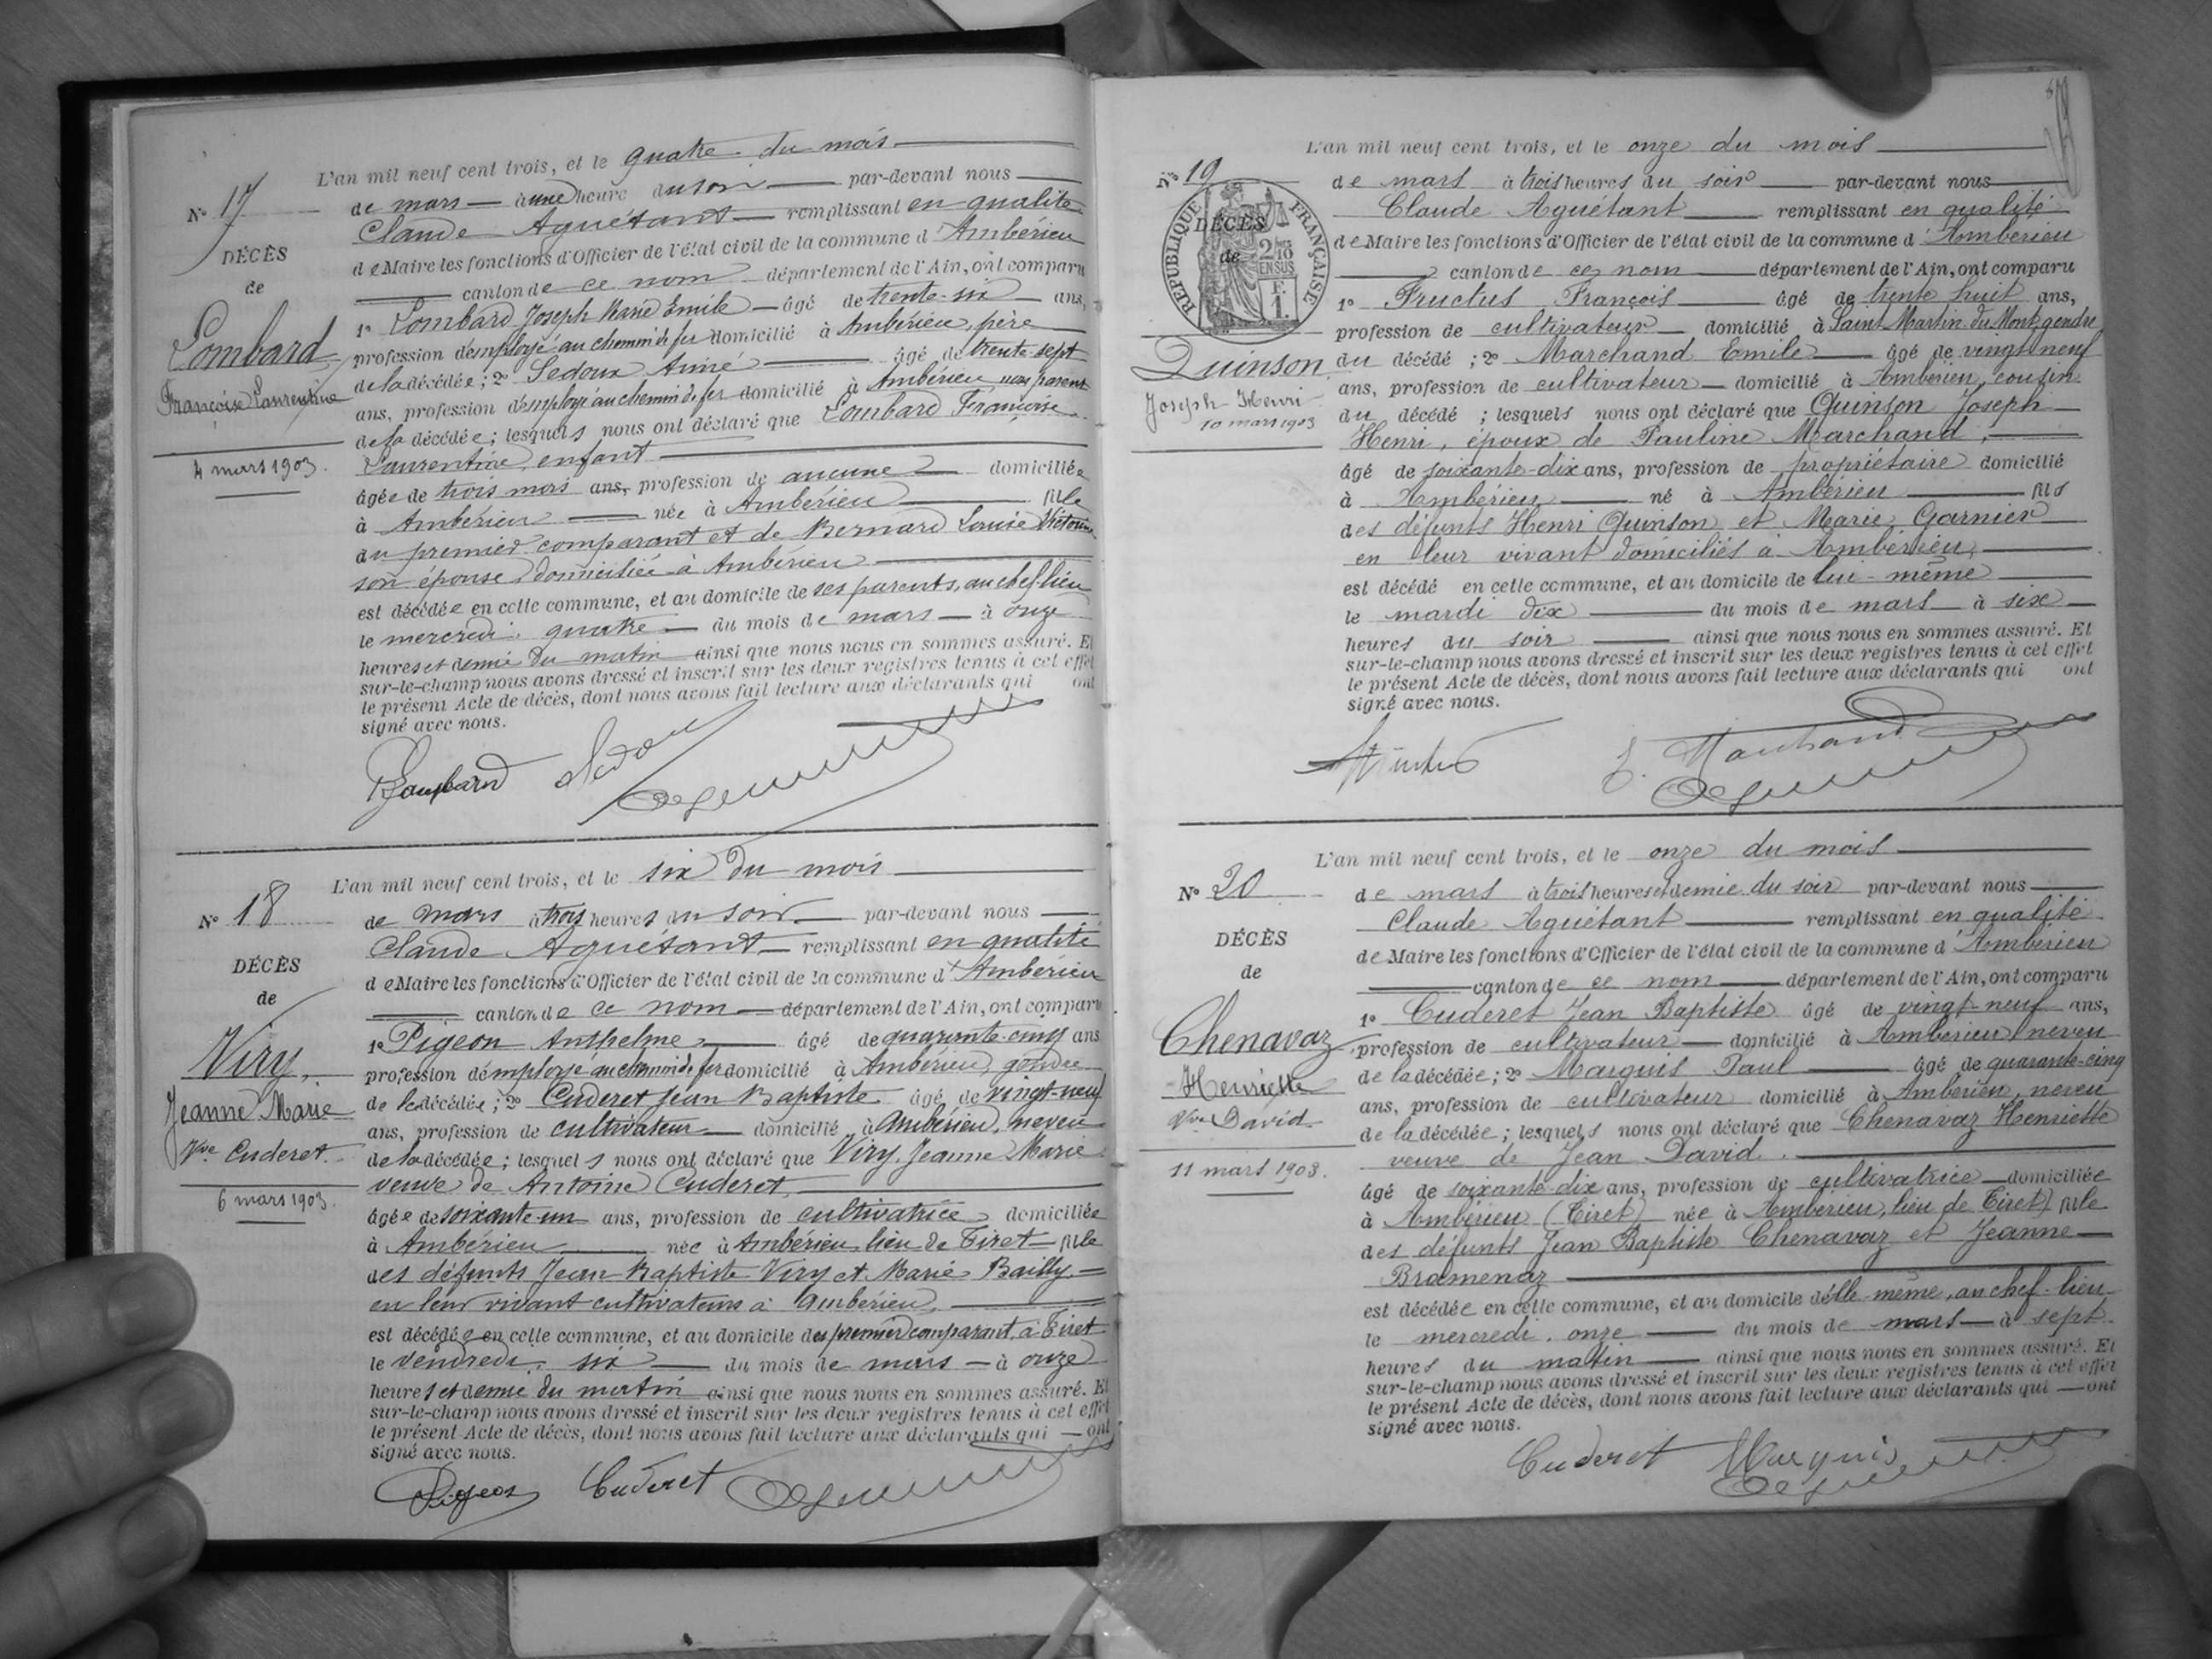 L'an mil neuf cent trois, et le quatre du mois
de mars à une heure du soir par-devant nous
Claude Aguétant remplissant en qualité
de Maire les fonctions d'Officier de l'état civil de la commune d'Ambérieu
canton de ce nom département de l'Ain, ont comparu
1º Lombard Joseph Marie Emile âgé de trente-six ans,
profession d'employé au chemin de fer domicilié à Ambérieu, père
de la décédée ; 2º Sedoux Aimé âgé de trente-sept
ans, profession d'employé au chemin de fer domicilié à Ambérieu, non parent
de la décédée ; lesquels nous ont déclaré que Lombard Françoise
Laurentine, enfant
âgée de trois mois ans, profession de aucune domiciliée
à Ambérieu née à Ambérieu fille
du premier comparant et de Bernard Louise Victorine
son épouse domiciliée à Ambérieu
est décédée en cette commune, et au domicile de ses parents, au chef-lieu
le mercredi quatre du mois de mars à onze
heures et demie du matin ainsi que nous nous en sommes assuré. Et
sur-le-champ nous avons dressé et inscrit sur les deux registres tenus à cet effet
le présent Acte de décès, dont nous avons fait lecture aux déclarants qui ont
signé avec nous.
Nº 17
DÉCÈS
de
Lombard
Françoise Laurentine
4 mars 1903.
Lombard
L'an mil neuf cent trois, et le six du mois
de mars à trois heures du soir par-devant nous
Claude Aguétant remplissant en qualité
de Maire les fonctions d'Officier de l'état civil de la commune d'Ambérieu
canton de ce nom département de l'Ain, ont comparu
1º Pigeon Anthelme âgé de quarante-cinq ans
profession d'employé au chemin de fer domicilié à Ambérieu, gendre
de la décédée ; 2º Cuderet Jean Baptiste âgé de vingt-neuf
ans, profession de cultivateur domicilié à Ambérieu, neveu
de la décédée ; lesquels nous ont déclaré que Viry, Jeanne Marie
veuve de Antoine Cuderet
âgée de soixante-un ans, profession de cultivatrice domiciliée
à Ambérieu née à Ambérieu, lieu de Tiret fille
des défunts Jean Baptiste Viry et Marie Bailly
en leur vivant cultivateurs à Ambérieu,
est décédée en cette commune, et au domicile du premier comparant, à Tiret
le vendredi six du mois de mars à onze
heures et demie du matin ainsi que nous nous en sommes assuré. Et
sur-le-champ nous avons dressé et inscrit sur les deux registres tenus à cet effet
le présent Acte de décès, dont nous avons fait lecture aux déclarants qui ont
signé avec nous.
Nº 18
DÉCÈS
de
Viry,
Jeanne Marie
Vve Cuderet.
6 mars 1903.
Pigeon Cuderet
L'an mil neuf cent trois, et le onze du mois
de mars à trois heures du soir par-devant nous
Claude Aguétant remplissant en qualité
de Maire les fonctions d'Officier de l'état civil de la commune d'Ambérieu
canton de ce nom département de l'Ain, ont comparu
1º Fructus François âgé de trente huit ans,
profession de cultivateur domicilié à Saint Martin du Mont, gendre
du décédé ; 2º Marchand Emile âgé de vingt-neuf
ans, profession de cultivateur domicilié à Ambérieu, cousin
du décédé ; lesquels nous ont déclaré que Quinson Joseph
Henri, époux de Pauline Marchand,
âgé de soixante-dix ans, profession de propriétaire domicilié
à Ambérieu né à Ambérieu fils
des défunts Henri Quinson et Marie Garnier
en leur vivant domiciliés à Ambérieu,
est décédé en cette commune, et au domicile de lui-même
le mardi dix du mois de mars à six
heures du soir ainsi que nous nous en sommes assuré. Et
sur-le-champ nous avons dressé et inscrit sur les deux registres tenus à cet effet
le présent Acte de décès, dont nous avons fait lecture aux déclarants qui ont
signé avec nous.
Nº 19
RÉPUBLIQUE FRANÇAISE
2/10 EN SUS
F. 1.
DÉCÈS
de
Quinson
Joseph Henri
10 mars 1903
E. Marchand
L'an mil neuf cent trois, et le onze du mois
de mars à trois heures et demie du soir par-devant nous
Claude Aguétant remplissant en qualité
de Maire les fonctions d'Officier de l'état civil de la commune d'Ambérieu
canton de ce nom département de l'Ain, ont comparu
1º Cuderet Jean Baptiste âgé de vingt-neuf ans,
profession de cultivateur domicilié à Ambérieu neveu
de la décédée ; 2º Marquis Paul âgé de quarante-cinq
ans, profession de cultivateur domicilié à Ambérieu, neveu
de la décédée ; lesquels nous ont déclaré que Chenavaz Henriette
veuve de Jean David.
âgé de soixante-dix ans, profession de cultivatrice domiciliée
à Ambérieu (Tiret) née à Ambérieu, lieu de Tiret) fille
des défunts Jean Baptiste Chenavaz et Jeanne
Bramenaz
est décédée en cette commune, et au domicile d'elle-même, au chef-lieu
le mercredi, onze du mois de mars à sept
heures du matin ainsi que nous nous en sommes assuré. Et
sur-le-champ nous avons dressé et inscrit sur les deux registres tenus à cet effet
le présent Acte de décès, dont nous avons fait lecture aux déclarants qui ont
signé avec nous.
Nº 20
DÉCÈS
de
Chenavaz
Henriette
Vve David.
11 mars 1903.
Cuderet Marquis